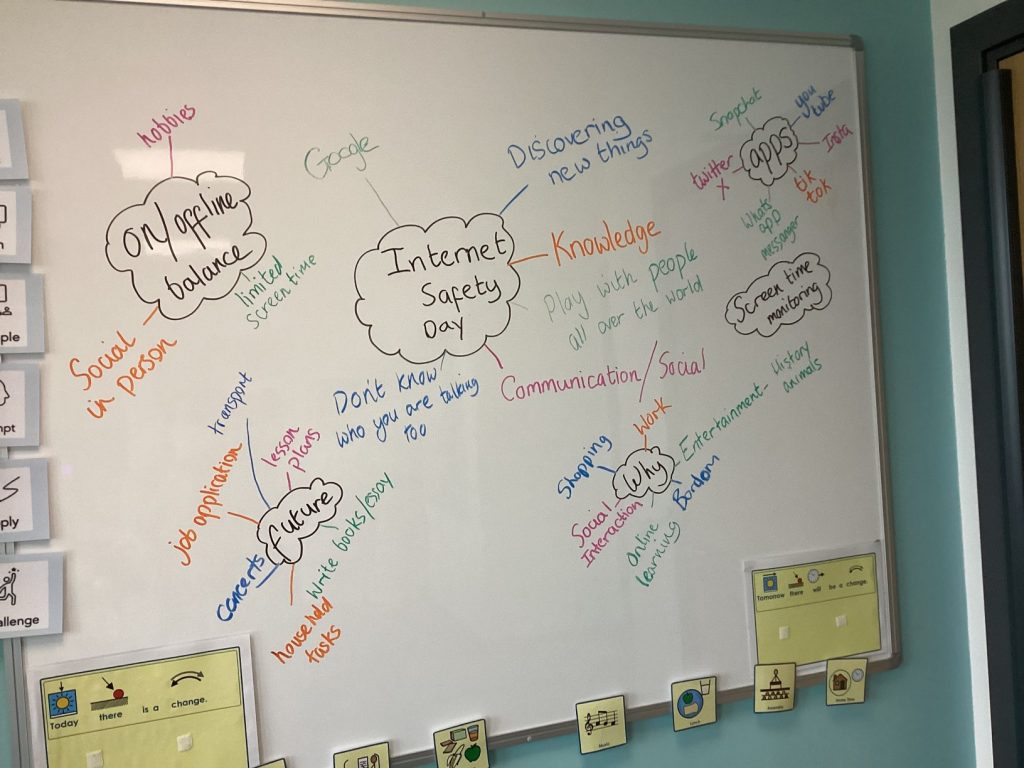 hobbies
on/offline
balance
limited
screen time
Social
in person
Google
Discovering
new things
Internet
Safety
Day
Knowledge
Play with people
all over the world
Communication/Social
Don't know
who you are talking
too
Snapchat
you
tube
apps
Insta
twitter
X
tik
tok
Whats
app
messanger
Screen time
monitoring
transport
lesson
plans
job application
future
Write books/essay
Concerts
household
tasks
Work
Shopping
Why
Entertainment - History
animals
Bordom
Social
Interaction
Online
learning
ple
mpt
ply
allenge
Today there is a change.
Tomorrow there will be a change.
Music
Lunch